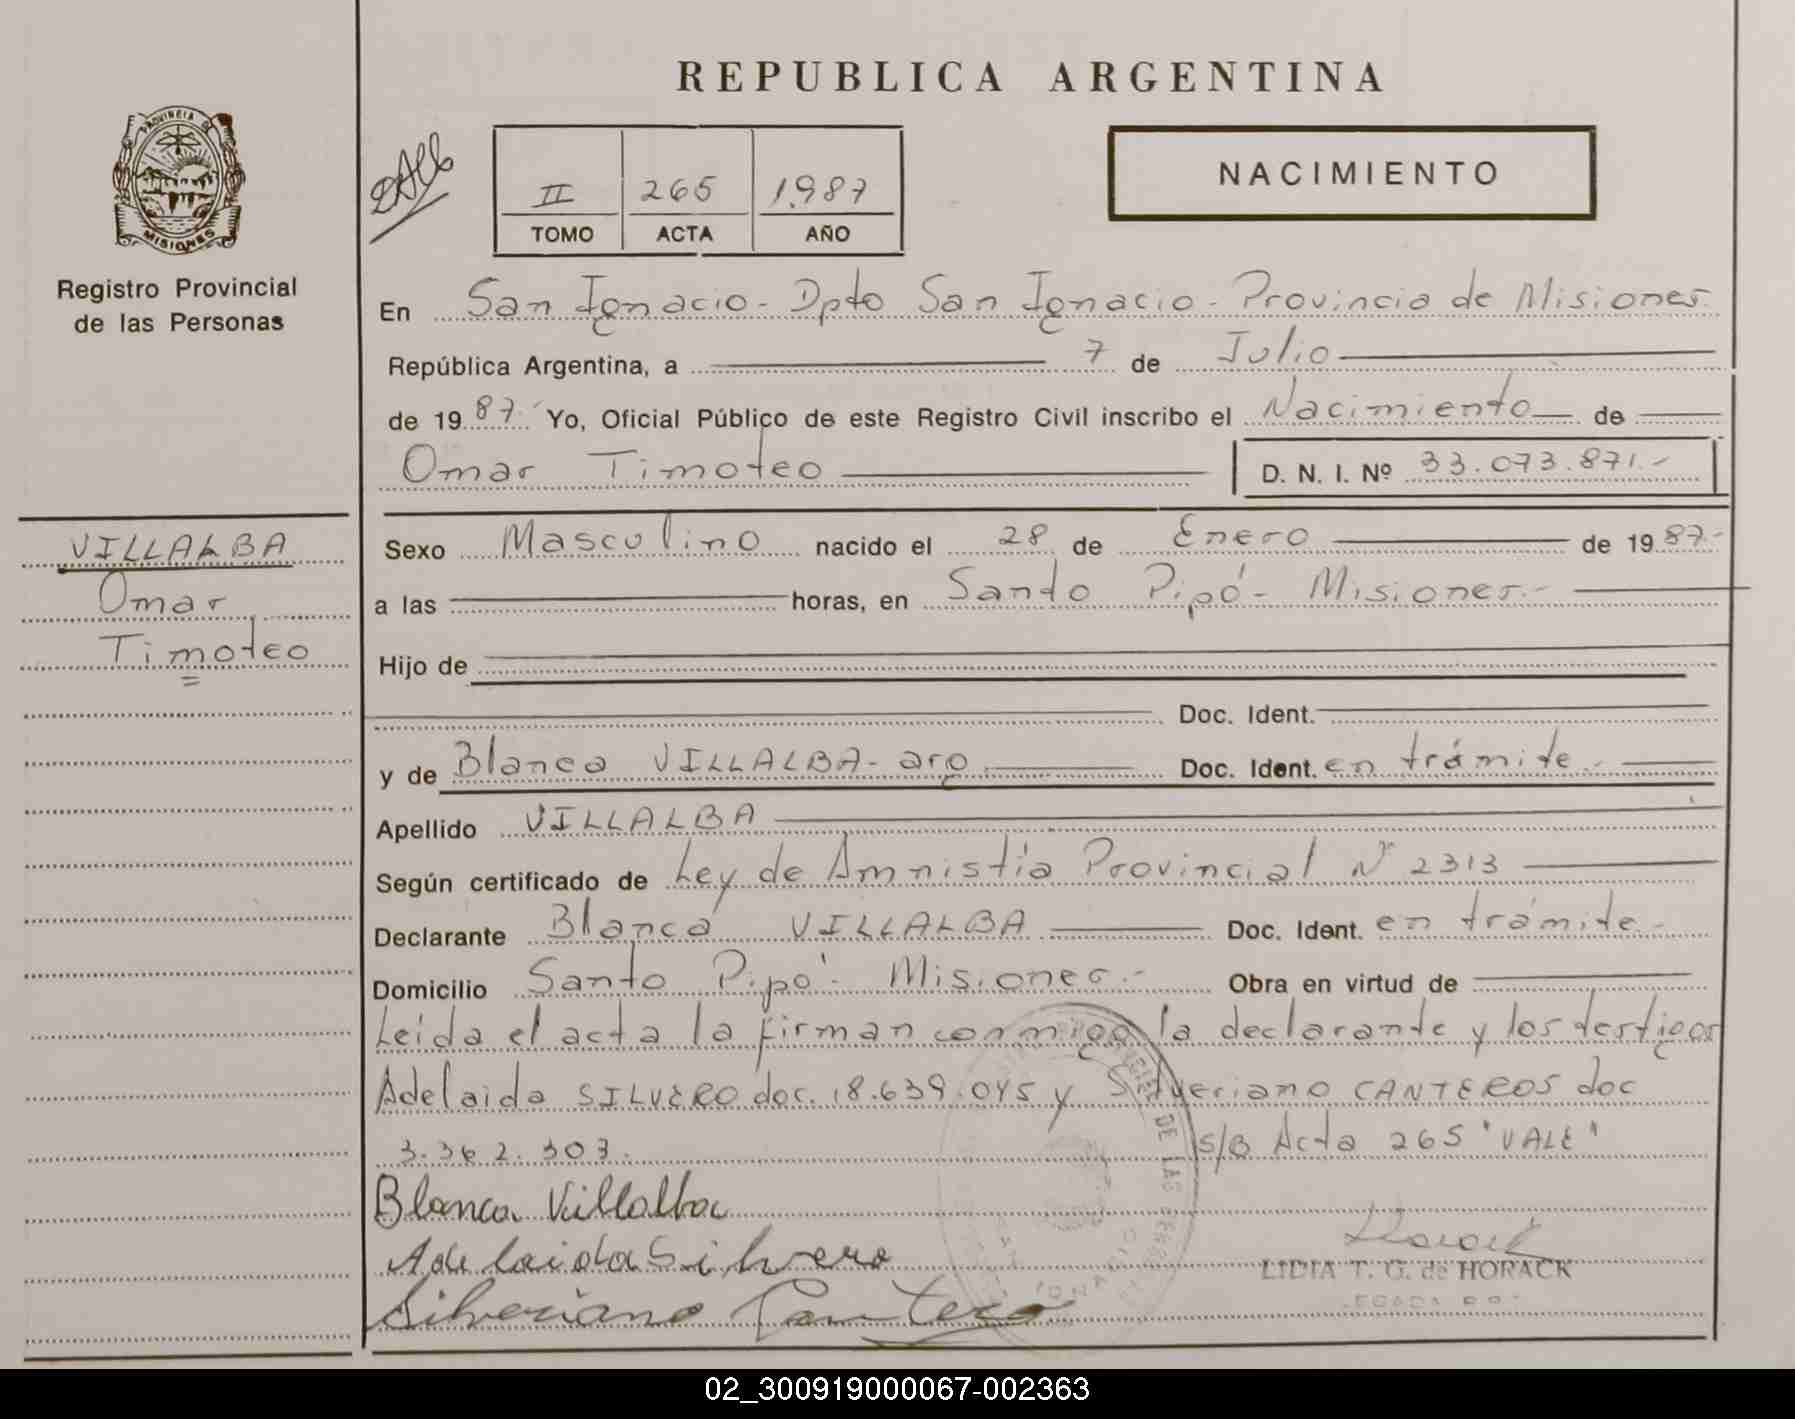 REPUBLICA ARGENTINA
PROVINCIA DE
MISIONES
Registro Provincial
de las Personas
II 265 1.987
TOMO ACTA AÑO
NACIMIENTO
En San Ignacio - Dpto San Ignacio - Provincia de Misiones
República Argentina, a 7 de Julio
de 19 87 Yo, Oficial Público de este Registro Civil inscribo el Nacimiento de
Omar Timoteo D. N. I. Nº 33.073.871.-
VILLALBA
Omar
Timoteo
Sexo Masculino nacido el 28 de Enero de 19 87-
a las horas, en Santo Pipó - Misiones.-
Hijo de
Doc. Ident.
y de Blanca VILLALBA - arg Doc. Ident. en trámite.-
Apellido VILLALBA
Según certificado de Ley de Amnistía Provincial Nº 2313
Declarante Blanca VILLALBA Doc. Ident. en trámite.-
Domicilio Santo Pipó - Misiones.- Obra en virtud de
Leída el acta la firman conmigo la declarante y los testigos
Adelaida SILVERO doc. 18.639.045 y Silveriano CANTEROS doc
3.362.303. S/B Acta 265 "VALE"
Blanca Villalba
Adelaida Silvero
Silveriano Cantero
LIDIA T. G. de HORACK
02_300919000067-002363